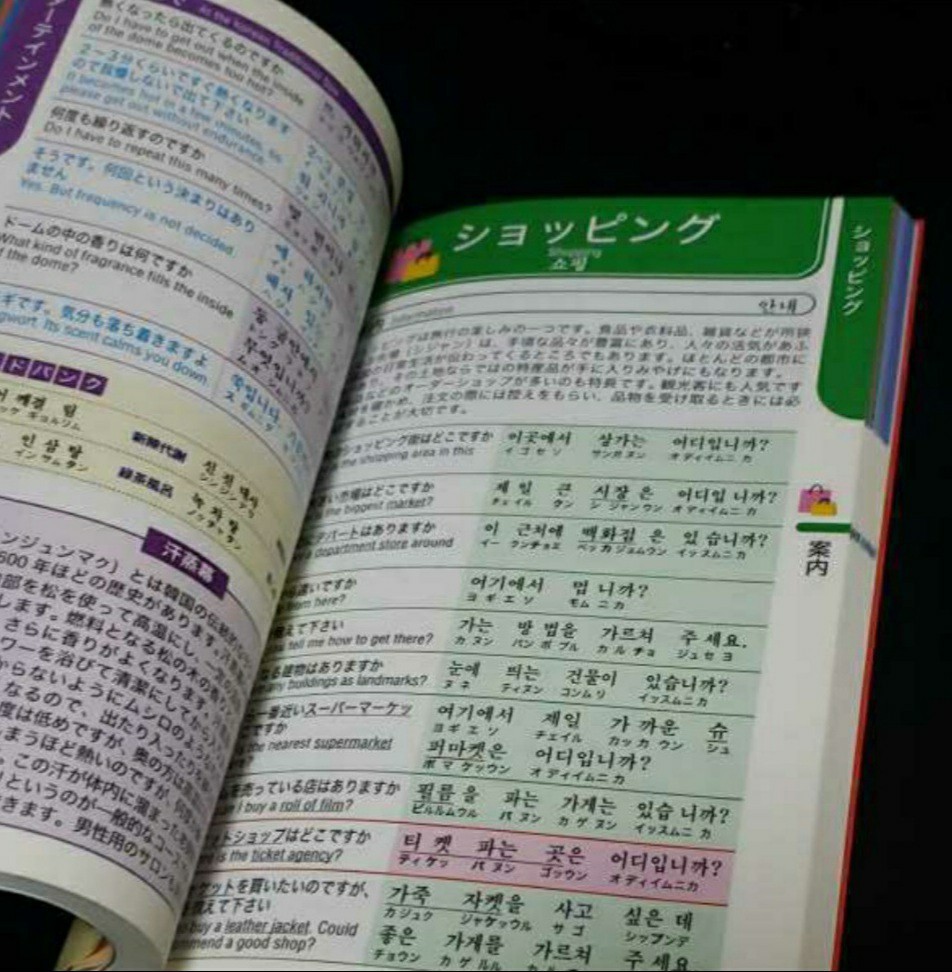 ーテインメント
At the Korean Traditional
熱くなったら出てくるのですか
Do I have to get out when the inside
of the dome becomes too hot?
2～3分くらいですぐ熱くなります
ので我慢しないで出て下さい
It becomes hot in a few minutes, so
please get out without endurance.
何度も繰り返すのですか
Do I have to repeat this many times?
そうです。何回という決まりはあり
ません
Yes. But frequency is not decided.
ドームの中の香りは何ですか
What kind of fragrance fills the inside
the dome?
ギです。気分も落ち着きますよ
gwort. Its scent calms you down.
쑥입니다.
ドバンク
新陳代謝
인삼탕
インサムタン
緑茶風呂
녹차탕
ノクチャタン
汗蒸幕
ンジュンマク）とは韓国の伝統的
600年ほどの歴史があります
部を松を使って高温にし、
します。燃料となる松の木の
さらに香りがよくなります。
ワーを浴びて清潔にしてから
からないようにムシロのような
なるので、出たり入ったり
度は低めですが、奥の方は
まうほど熱いのですが、何
、この汗が体内に溜まった
というのが一般的なコース
きます。男性用のサロンも
ショッピング
Shopping
쇼핑
Information
안내
ングは旅行の楽しみの一つです。食品や衣料品、雑貨などが所狭
市場（シジャン）は、手頃な品々が豊富にあり、人々の活気があふ
の日常生活が伝わってくるところでもあります。ほとんどの都市に
その土地ならではの特産品が手に入りやすいにもなります。
などのオーダーショップが多いのも特長です。観光客にも人気です
を確かめ、注文の際には控えをもらい、品物を受け取るときには必
ことが大切です。
ショッピング街はどこですか
the shopping area in this
이곳에서 상가는 어디입니까?
イゴセソ サンガヌン オディイムニカ
市場はどこですか
the biggest market?
제일 큰 시장은 어디입니까?
チェイル クン シジャンウン オディイムニカ
デパートはありますか
department store around
이 근처에 백화점은 있습니까?
イー クンチョエ ペッカジョムウン イッスムニカ
遠いですか
from here?
여기에서 멉니까?
ヨギエソ モムニカ
教えて下さい
tell me how to get there?
가는 방법을 가르쳐 주세요.
カヌン パンボブル カルチョ ジュセヨ
る建物はありますか
any buildings as landmarks?
눈에 띄는 건물이 있습니까?
ヌネ ティヌン コンムリ イッスムニカ
一番近いスーパーマーケッ
ですか
the nearest supermarket
여기에서 제일 가까운 슈
ヨギエソ チェイル カッカウン シュ
퍼마켓은 어디입니까?
ポマケッウン オディイムニカ
を売っている店はありますか
I buy a roll of film?
필름을 파는 가게는 있습니까?
ピルルムウル パヌン カゲヌン イッスムニカ
ットショップはどこですか
is the ticket agency?
티켓 파는 곳은 어디입니까?
ティケッ パヌン ゴッウン オディイムニカ
ケットを買いたいのですが、
教えて下さい
buy a leather jacket. Could
mend a good shop?
가죽 자켓을 사고 싶은데
カジュク ジャケッウル サゴ シップンデ
좋은 가게를 가르쳐 주세요.
チョウン カゲルル
ショッピング
案内